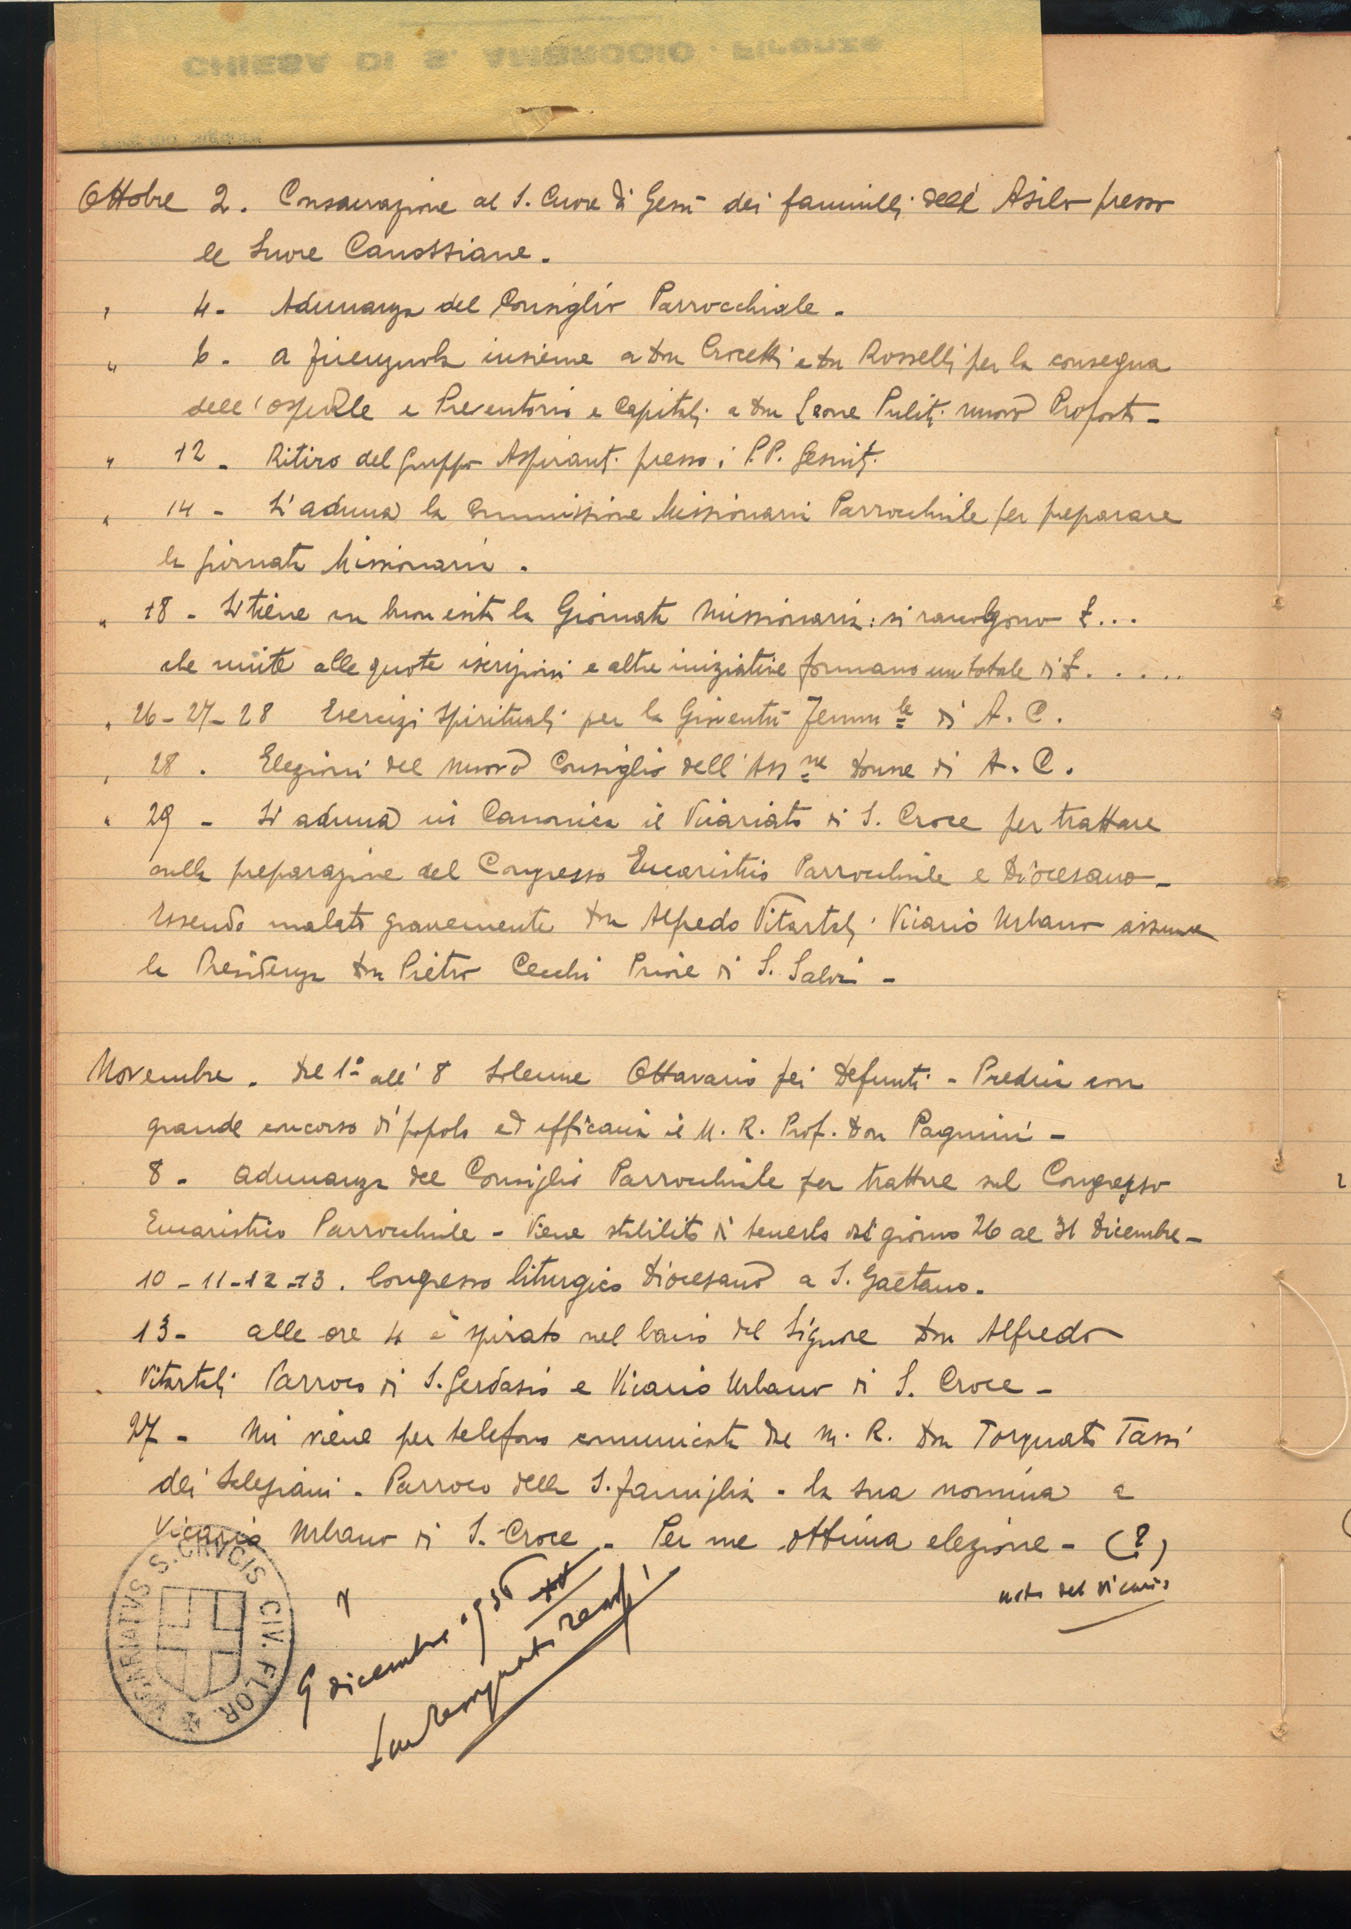 CHIESA DI S. AMBROGIO - Firenze
Ottobre 2. Consacrazione al S. Cuore di Gesù dei fanciulli dell'Asilo presso
le Suore Canossiane.
" 4 - Adunanza del Consiglio Parrocchiale.
" 6 - a Firenzuola insieme a don Crocetti e don Rosselli per la consegna
dell'Ospedale e Preventorio e Capitali a don Leone Puliti nuovo Proposto -
" 12 - Ritiro del Gruppo Aspiranti presso i P.P. Gesuiti.
" 14 - Si aduna la Commissione Missionaria Parrocchiale per preparare
la giornata Missionaria.
" 18 - Si tiene con buon esito la Giornata Missionaria: si raccolgono £...
che unite alle quote iscrizioni e altre iniziative formano un totale di £.....
" 26-27-28 Esercizi Spirituali per la Gioventù Femmle di A.C.
" 28. Elezioni del nuovo Consiglio dell'Assne Donne di A.C.
" 29 - Si aduna in Canonica il Vicariato di S. Croce per trattare
sulla preparazione del Congresso Eucaristico Parrocchiale e Diocesano -
Essendo malato gravemente don Alfredo Vitartali Vicario Urbano assume
la Presidenza don Pietro Cecchi Priore di S. Salvi -
Novembre. Dal 1° all'8 Solenne Ottavario pei Defunti - Predica con
grande concorso di popolo ed efficacia il M. R. Prof. Don Pagnini -
8 - Adunanza del Consiglio Parrocchiale per trattare sul Congresso
Eucaristico Parrocchiale - Viene stabilito di tenerlo dal giorno 26 al 31 Dicembre -
10-11-12-13. Congresso liturgico Diocesano a S. Gaetano.
13 - alle ore 4 è spirato nel bacio del Signore don Alfredo
Vitartali Parroco di S. Gervasio e Vicario Urbano di S. Croce -
27 - Mi viene per telefono comunicata dal M. R. don Torquato Tassi
dei Salesiani - Parroco della S. Famiglia - la sua nomina a
Vicario Urbano di S. Croce. Per me ottima elezione - (?)
nota del Vicario
9 dicembre 1936 XV
Torquato Tassi
VICARIATVS S. CRVCIS CIV. FLOR.